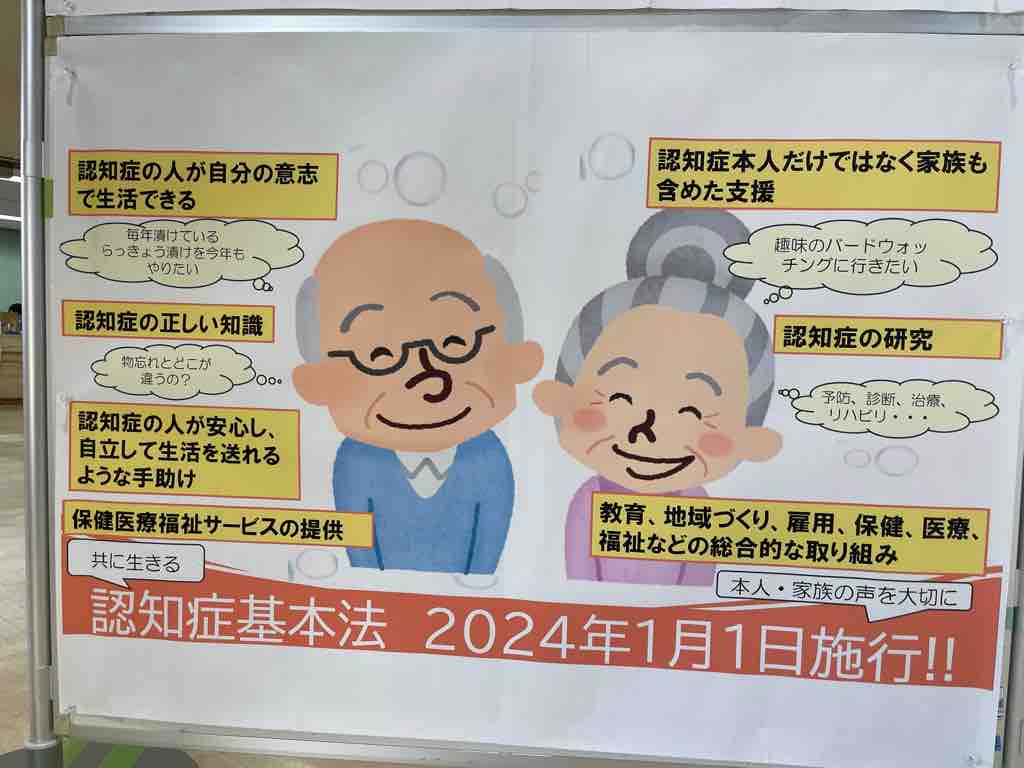 認知症の人が自分の意志
で生活できる
毎年漬けている
らっきょう漬けを今年も
やりたい
認知症の正しい知識
物忘れとどこが
違うの?
認知症の人が安心し、
自立して生活を送れる
ような手助け
保健医療福祉サービスの提供
共に生きる
認知症本人だけではなく家族も
含めた支援
趣味のバードウォッ
チングに行きたい
認知症の研究
予防、診断、治療、
リハビリ・・・
教育、地域づくり、雇用、保健、医療、
福祉などの総合的な取り組み
本人・家族の声を大切に
認知症基本法 2024年1月1日施行!!